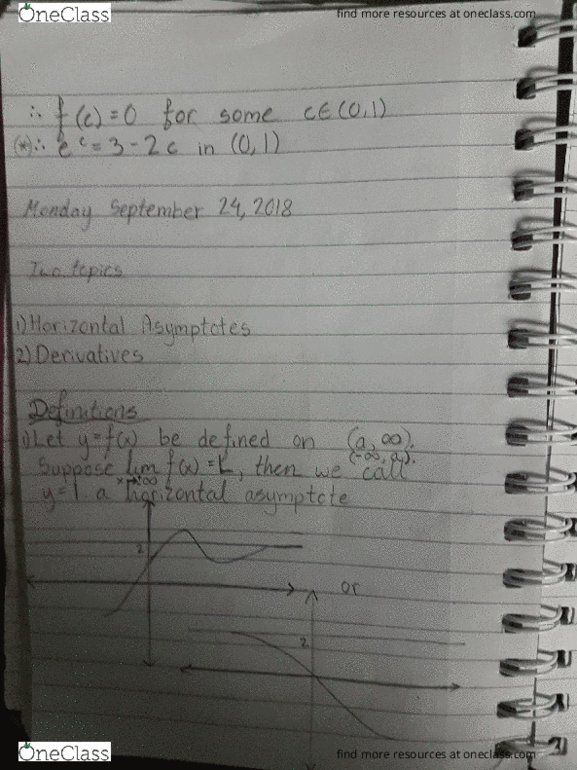 OneClass
find more resources at oneclass.com
∴ f(c)=0 for some c∈(0,1)
(*)∴ e^c = 3-2c in (0,1)
Monday September 24, 2018
Two topics
1) Horizontal Asymptotes
2) Derivatives
Definitions
1) Let y=f(x) be defined on (a,∞).
(-∞,a).
Suppose lim f(x)=L, then we call
x→∞
y=L a horizontal asymptote
2
or
2
OneClass
find more resources at oneclass.com